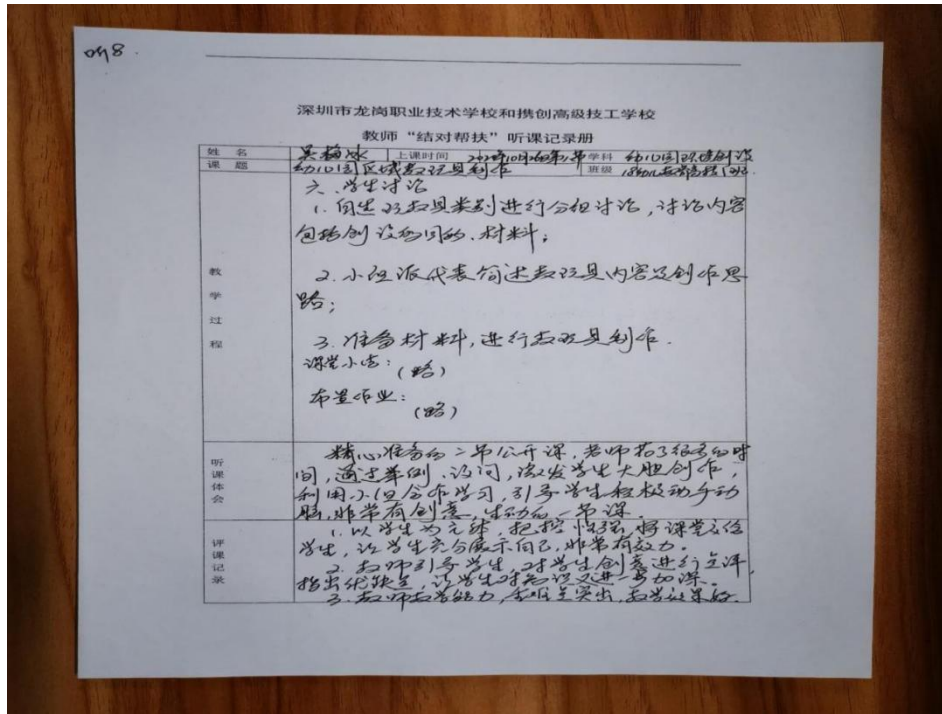 听8.
深圳市龙岗职业技术学校和携创高级技工学校
教师“结对帮扶”听课记录册
姓 名 吴梅冰 上课时间 学科 幼儿园环境创设
课 题 幼儿园区域教玩具制作 班级
六、学生讨论
1. 自选玩教具类别进行分组讨论,讨论内容
包括创设的目的、材料;
2. 小组派代表简述教玩具内容及创作思
路;
3. 准备材料,进行教玩具制作.
课堂小结:
(略)
布置作业:
(略)
教学过程
听课体会
精心准备的一节公开课,老师花了很多的时
间,通过举例、设问,激发学生大胆创作,
利用小组合作学习,引导学生积极动手动
脑,非常有创意,生动的一节课.
评课记录
1. 以学生为主体,把控性强,将课堂交给
学生,让学生充分展示自己,非常有效力。
2. 教师引导学生,对学生创意进行点评,
指出优缺点,让学生对知识又进一步加深。
3. 教师教学能力,重难点突出,教学效果好.